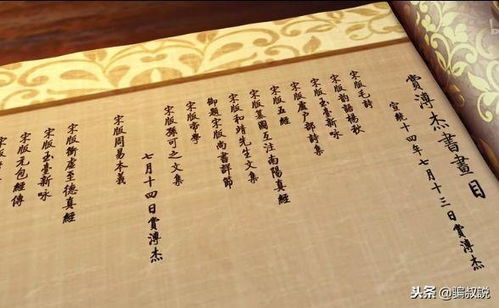 賞溥杰書畫目
宣統十四年七月十三日賞溥杰
宋版毛詩
宋版韵語楊秋
宋版玉臺新咏
宋版盧户部詩集
宋版五經
宋版纂圖互注南陽真經
宋版和靖先生文集
御題宋版尚書詳節
宋版帝學
宋版孫可之文集
七月十四日賞溥杰
宋版周易本義
宋版衝虛至德真經
宋版玉臺新咏
宋版元包經傳
头条 @骗叔説